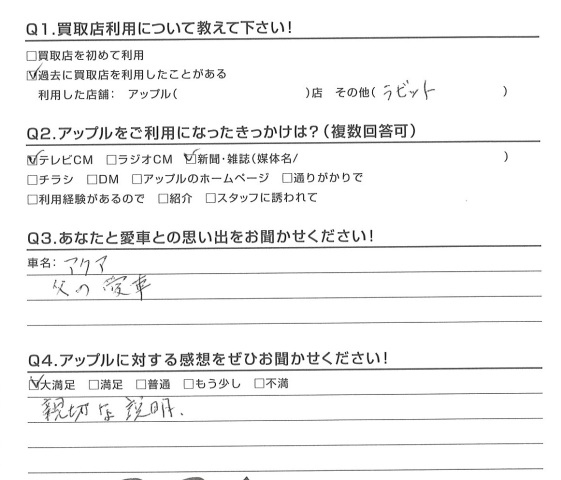 Q1.買取店利用について教えて下さい！
□買取店を初めて利用
☑過去に買取店を利用したことがある
利用した店舗： アップル（ ）店 その他（ ラビット ）
Q2.アップルをご利用になったきっかけは？（複数回答可）
☑テレビCM □ラジオCM ☑新聞・雑誌（媒体名/ ）
□チラシ □DM □アップルのホームページ □通りがかりで
□利用経験があるので □紹介 □スタッフに誘われて
Q3.あなたと愛車との思い出をお聞かせください！
車名： アクア
父の愛車
Q4.アップルに対する感想をぜひお聞かせください！
☑大満足 □満足 □普通 □もう少し □不満
親切な説明.